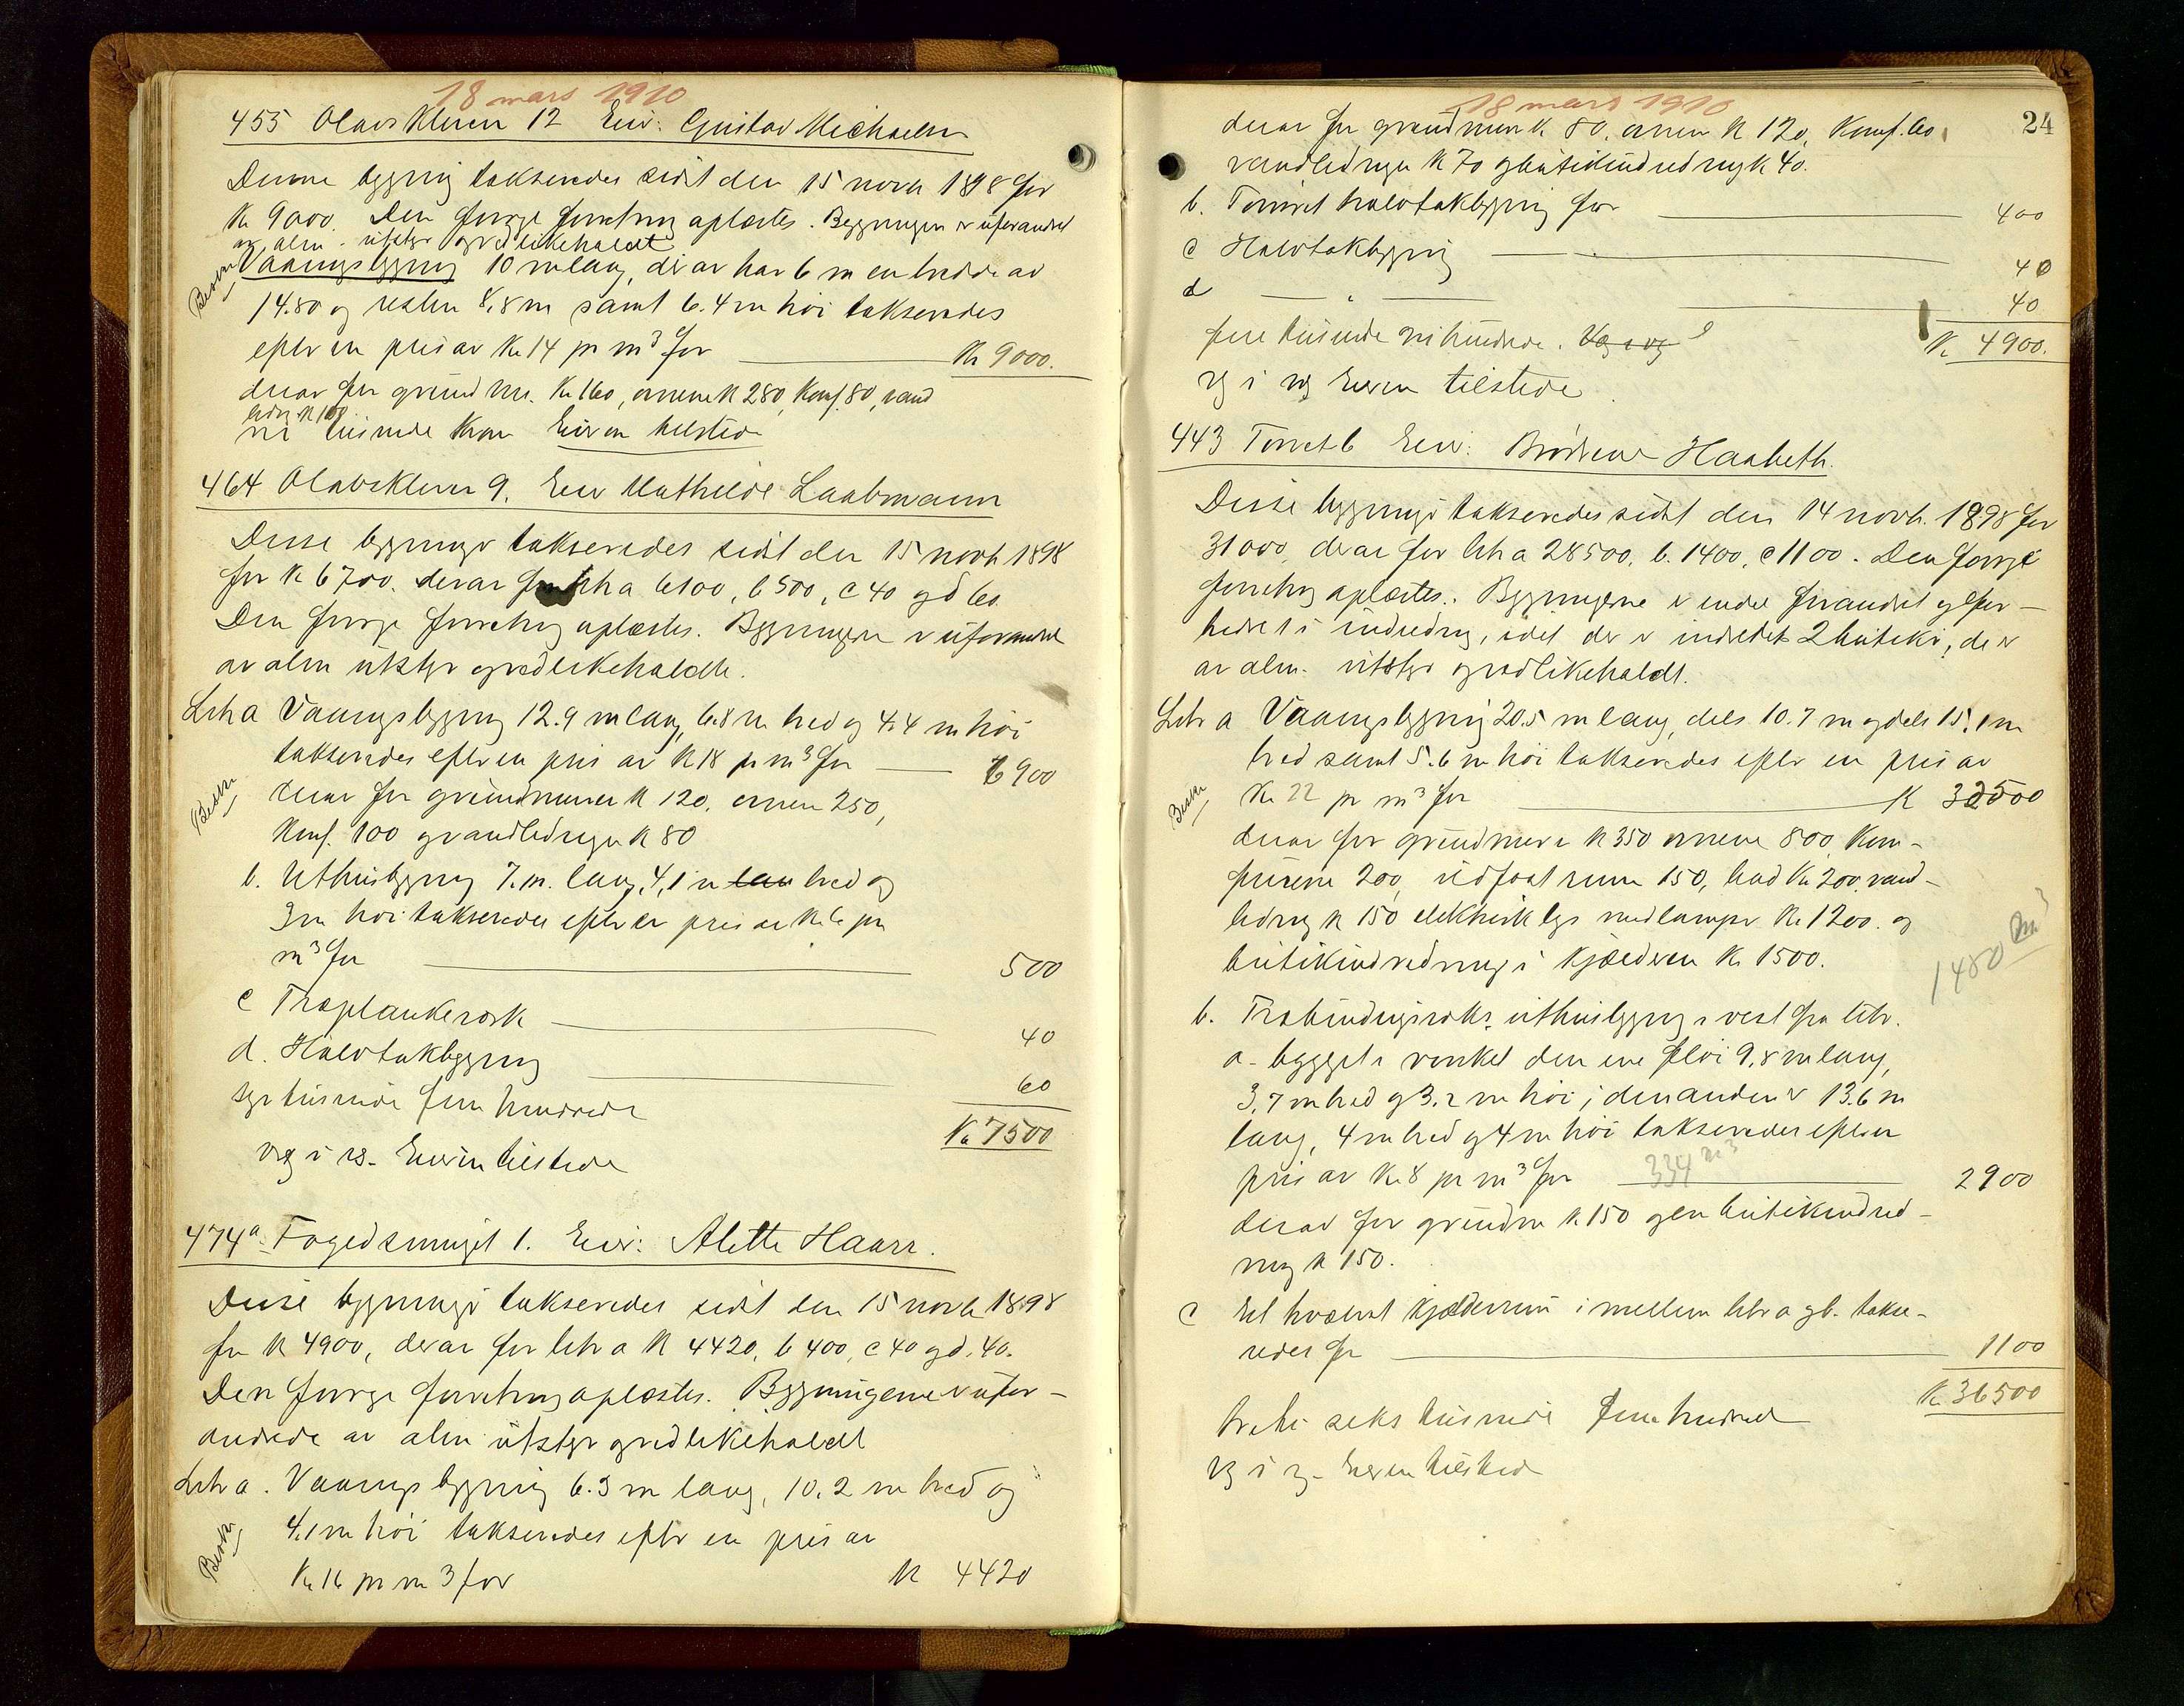 18 mars 1910
455 Olavskleven 12 Eier: Gustav Michaelsen
Denne bygning takseredes sidst den 15 novb 1898 for
Kr 9000. Den forrige forretning oplæstes. Bygningen er uforandret
av alm. utstyr og vedlikeholdt
Vaaningsbygning 10 m lang, derav har 6 m en bredde av
14.80 og resten 8,8 m samt 6.4 m høi takseredes
efter en pris av Kr 14 pr m³ for Kr 9000.
derav for grundmur. Kr 160, ovnene K 280, Komf. 80, vand
ledn K 100
ni tusinde Kroner Eieren tilstede
464 Olavskleven 9. Eier Mathilde Laubmann
Disse bygninger takseredes sidst den 15 novb 1898
for K 6700. derav for litr a 6100, b 500, c 40 og d 60
Den forrige forretning oplæstes. Bygningene er uforandret
av alm utstyr og vedlikeholdte.
Litr a Vaaningsbygning 12.9 m lang, 6.8 m bred og 4.4 m høi
takseredes efter en pris av K 18 pr m³ for 6900
Beskr
derav for grundmuren K 120, ovnen 250,
Komf. 100 og vandledningen K 80
b. Uthusbygning 7. m. lang, 4,1 m lan bred og
3 m høi takseredes efter en pris av K 6 pr
m³ for 500
c Træplankeværk 40
d. Halvtakbygning 60
syv tusinde fem hundrede Kr 7500
Eieren tilstede
474a. Fogedsmuget 1. Eier: Alette Haarr.
Disse bygninger takseredes sidst den 15 novb 1898
for K 4900, derav for litr a K 4420, b 400, c 40 og d. 40.
Den forrige forretning oplæstes. Bygningene er ufor-
andrede av alm utstyr og vedlikeholdt
Litr a. Vaaningsbygning 6.3 m lang, 10.2 m bred og
4.1 m høi takseredes efter en pris av
Beskr
Kr 16 pr m 3 for K 4420
18 mars 1910
24
derav for grundmur K 80, ovnen K 120, Komf. 60,
vandledningen K 70 og butikindredning K 40.
b. Tomret halvtakbygning for 400
c Halvtakbygning 40
d " 40
fire tusinde nihundrede. Kr 4900.
Eieren tilstede
443 Torvet 6 Eier: Brødrene Haabeth.
Disse bygninger takseredes sidst den 14 novb. 1898 for
31000, derav for litr a 28500, b. 1400, c 1100. Den forrige
forretning oplæstes. Bygningene er endel forandret og for-
bedret i indredning, idet der er indredet 2 butiker, de er
av alm. utstyr og vedlikeholdt.
Litr a Vaaningsbygning 20.5 m lang, dels 10.7 m og dels 15.1 m
bred samt 5.6 m høi takseredes efter en pris av
Beskr
Kr 22 pr m³ for K 32500
derav for grundmure K 350 ovnene 800 Kom-
furene 200, ildfast rum 150, bad Kr 200, vand-
ledning K 150 elektrisk lys med lamper Kr 1200. og
butikindredning i Kjælderen K 1500.
1480 m³
b. Træbindingsverks uthusbygning i vest fra litr.
a. bygget i vinkel den ene fløi 9,8 m lang,
3,7 m bred og 3.2 m høi; den anden er 13.6 m
lang, 4 m bred og 4 m høi takseredes efter en
pris av Kr. 8 pr m³ for 334 m³ 2900
derav for grundm K 150 og en butikindred-
ning K 150.
c Et hvælvet Kjælderrum imellem litr a og b. takse-
redes for 1100
Kr 36500
tretti seks tusinde fem hundred
Eieren tilstede